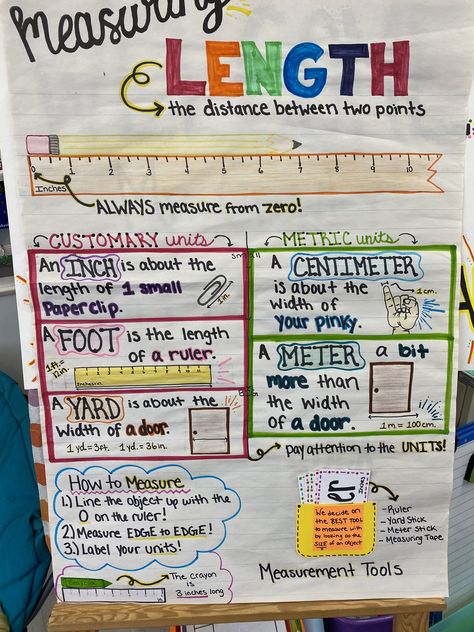 Measuring
LENGTH
the distance between two points
0 1 2 3 4 5 6 7 8 9 10
Inches
ALWAYS measure from zero!
CUSTOMARY units
METRIC units
Small
An INCH is about the
length of 1 small
Paperclip.
1 in.
A FOOT is the length
of a ruler.
1 ft. =
12 in.
A YARD is about the
width of a door.
1 yd. = 3ft. 1 yd. = 36in.
BIG
A CENTIMETER
is about the
width of
your pinky.
1 cm.
A METER a bit
more than
the width
of a door.
1 m = 100cm.
pay attention to the UNITS!
How to Measure
1.) Line the object up with the
0 on the ruler!
2.) Measure EDGE to EDGE!
3.) Label your units!
The crayon
is
3 inches long
er
Inches
We decide on
the BEST TOOL
to measure with
by looking at the
SIZE of an object
- Ruler
- Yard Stick
- Meter Stick
- Measuring Tape
Measurement Tools